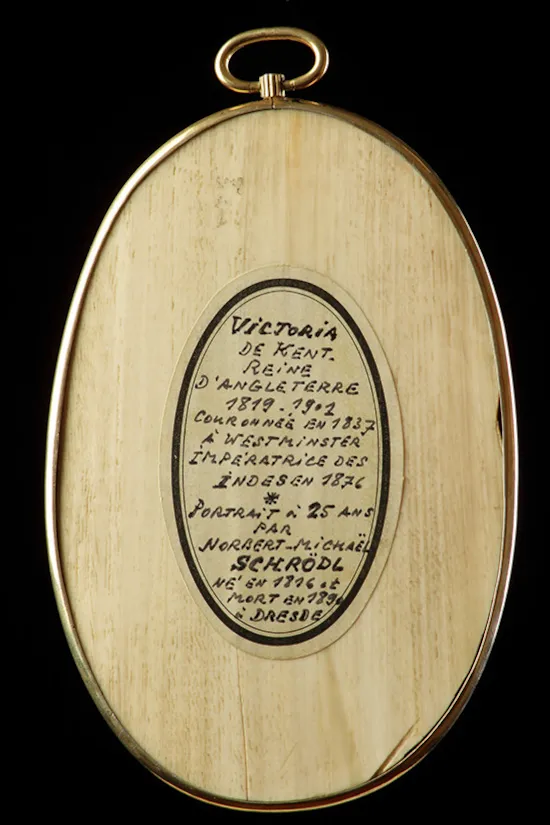 VICTORIA
DE KENT.
REINE
D'ANGLETERRE
1819-1901
COURONNÉE EN 1837
À WESTMINSTER
IMPÉRATRICE DES
INDES EN 1876
*
PORTRAIT à 25 ANS
PAR
NORBERT-MICHAËL
SCHRÖDL
NÉ EN 1816 et
MORT EN 1890
à DRESDE